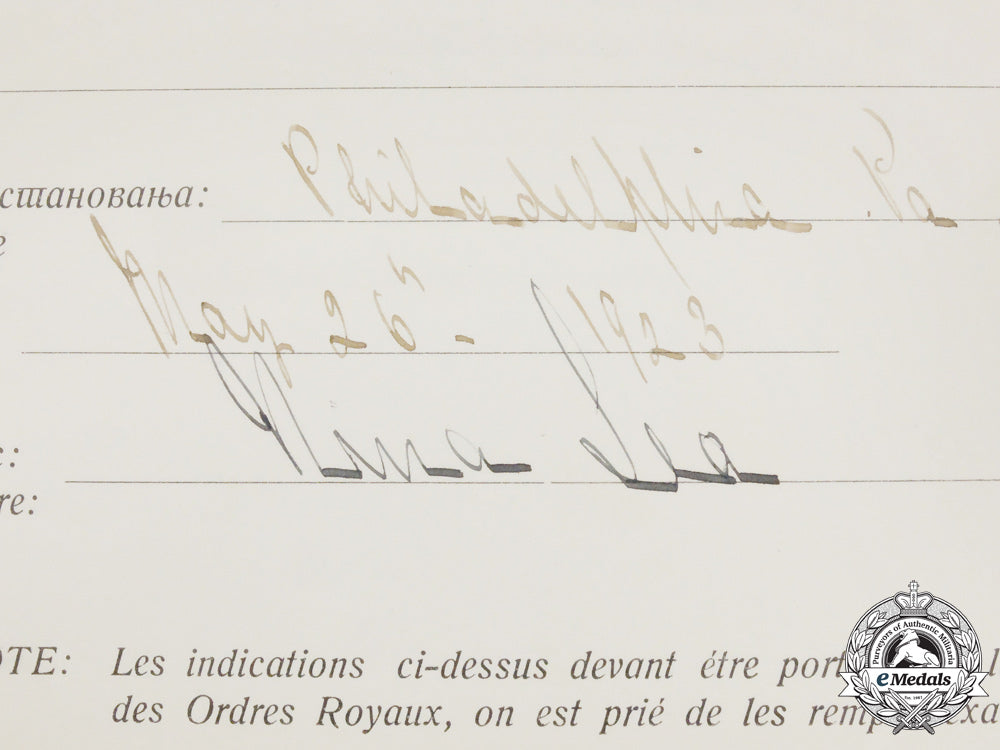 становања: Philadelphia Pa.
e
May 26" - 1923
Nina Lea
:
re:
OTE: Les indications ci-dessus devant étre port l
des Ordres Royaux, on est prié de les remp exa
Purveyors of Authentic Militaria
eMedals
Est. 1987